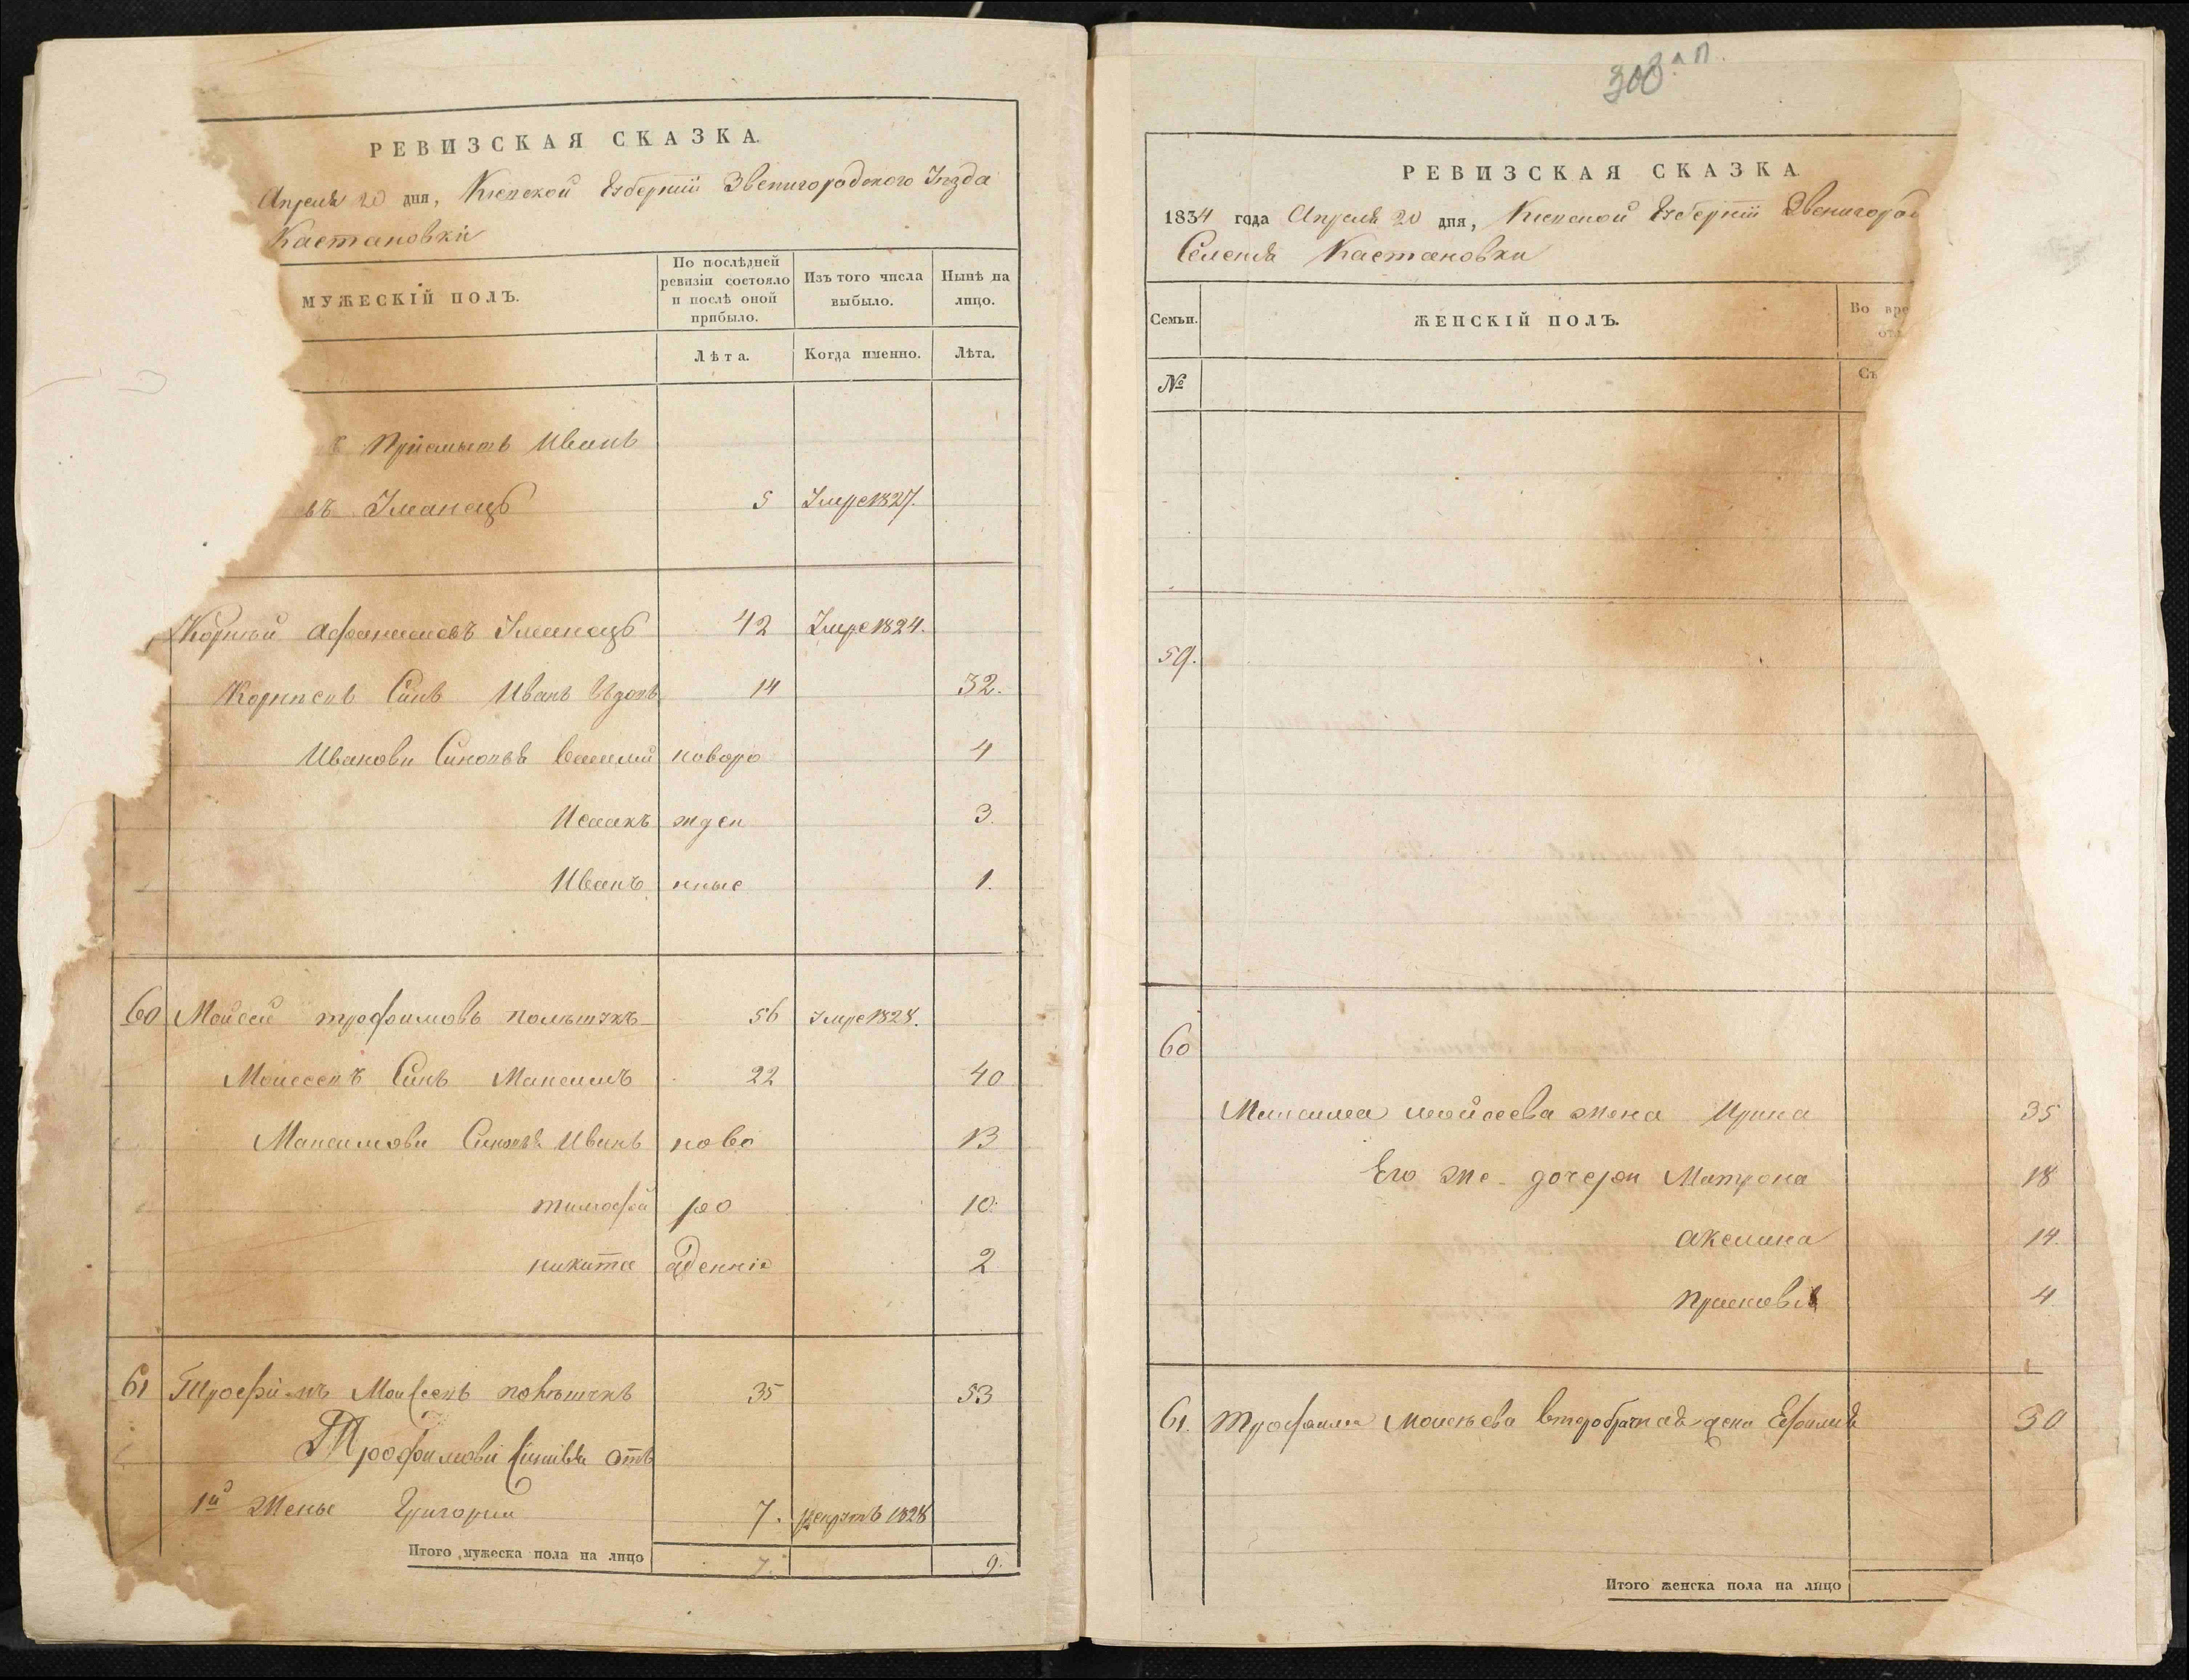 РЕВИЗСКАЯ СКАЗКА.
Апреля 20 дня, Киевской Губернїи Звенигородского Уезда
Кастановки
МУЖЕСКІЙ ПОЛЪ.
По послѣдней ревизіи состояло и послѣ оной прибыло.
Изъ того числа выбыло.
Нынѣ на лицо.
Лѣта.
Когда именно.
Лѣта.
Иванъ
5 Умре 1827.
Корнѣй Афанасиевъ 42 Умре 1824.
Корнеевъ Синъ Иванъ 14 32.
Иванови Синовья Василий новоро 4
Исаакъ жден 3.
Иванъ нные 1.
60 Мойсей трофимовъ 56 умре 1828.
Моисеевъ Синъ Максимъ 22 40
Максимови Синовья Иванъ ново 13
тимофей ро 10.
никита жденніе 2
61 Трофимъ Моисеевъ 35 53
Трофимови Синовья отъ
1й Жены Григорий 7. рекрутъ 1828
Итого мужеска пола на лицо 7. 9.
300
РЕВИЗСКАЯ СКАЗКА.
1834 года Апреля 20 дня, Киевской Губернїи Звенигород
Селения Кастановки
Семьи.
ЖЕНСКІЙ ПОЛЪ.
Во вре
отл
№
Съ
59.
60
Максима мойсеева жена Ирина 35
Его же дочери Матрона 18
Аксимия 14.
Прасковья 4
61. Трофима Моисеева второбрачная жена Ефимия 30
Итого женска пола на лицо